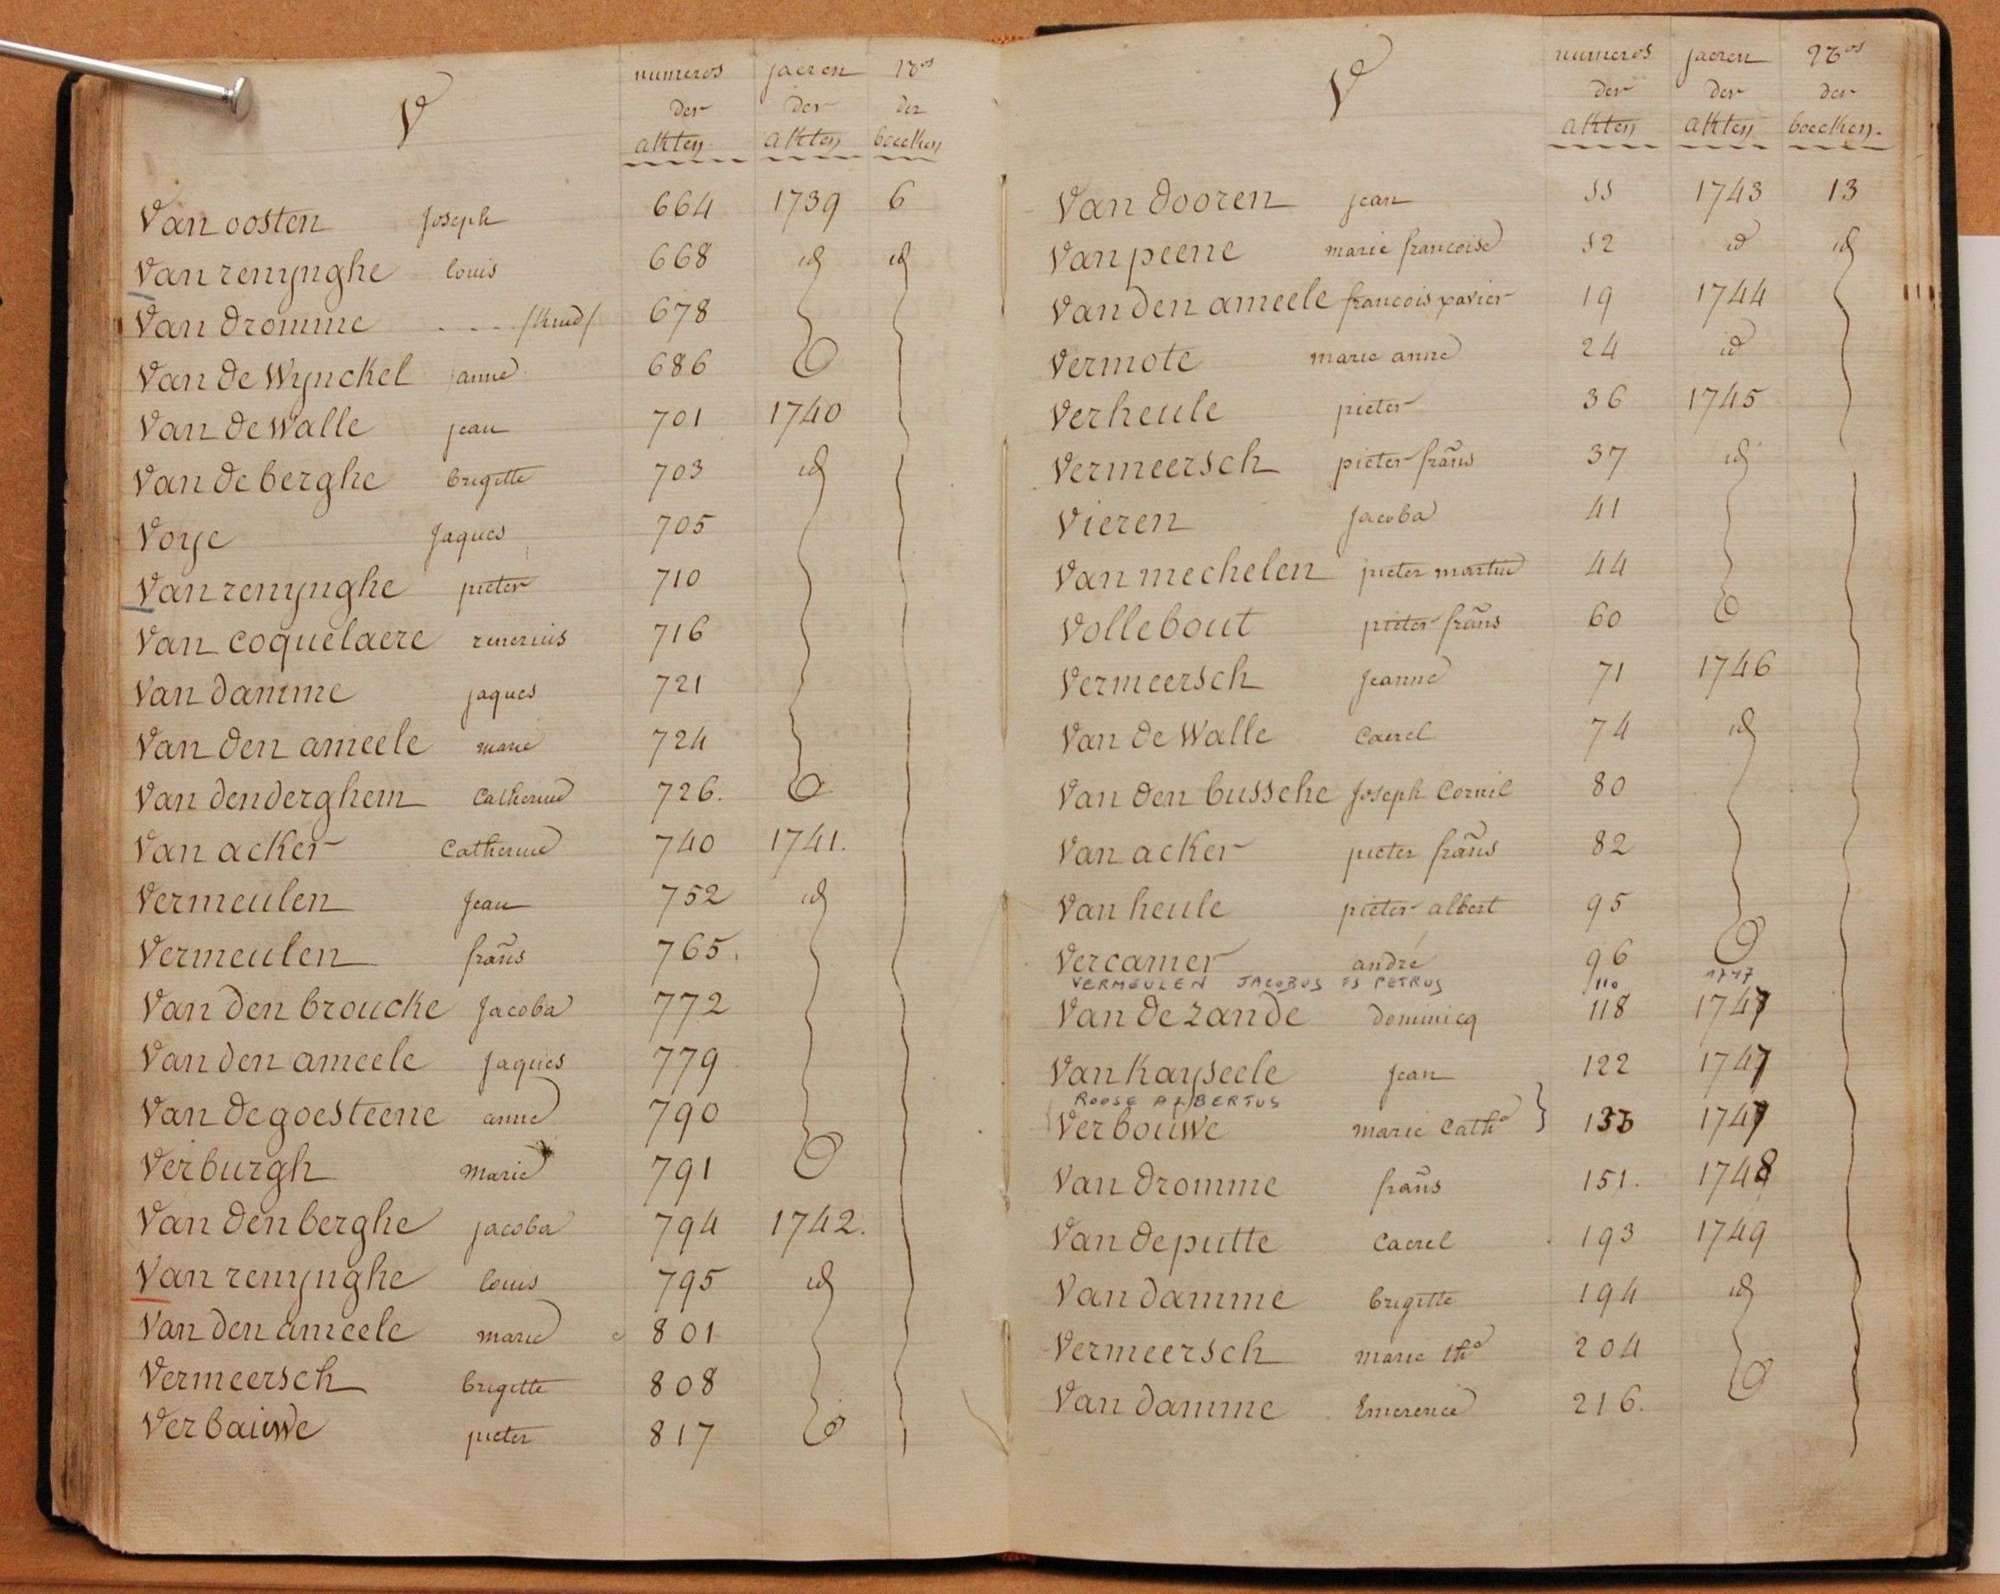 V numeros jaeren nos
der der der
akten akten boecken
Van oosten Joseph 664 1739 6
Van renynghe louis 668 id id
Van dromme .... /kind/ 678
Van de Wynckel anne 686
Van de Walle jean 701 1740
Van de berghe brigitte 703 id
Voye Jaques 705
Van renynghe pieter 710
Van coquelaere renerius 716
Van damme jaques 721
Van den ameele marie 724
Van denderghem Catherine 726.
Van acker Catherine 740 1741.
Vermeulen Jean 752 id
Vermeulen frañs 765.
Van den broucke Jacoba 772
Van den ameele Jaques 779
Van de goesteene anne 790
Verburgh Marie 791
Van den berghe jacoba 794 1742.
Van renynghe louis 795 id
Van den ameele marie 801
Vermeersch brigitte 808
Verbauwe pieter 817
V numeros jaeren nos
der der der
akten akten boecken.
Van dooren jean 55 1743 13
Van peene marie francoise 52 id id
Van den ameele francois xavier 19 1744
Vermote marie anne 24 id
Verheule pieter 36 1745
Vermeersch pieter frañs 37 id
Vieren Jacoba 41
Van mechelen pieter martin 44
Vollebout pieter frañs 60
Vermeersch Jeanne 71 1746
Van de Walle Caerel 74 id
Van den bussche Joseph Cornil 80
Van acker pieter frañs 82
Van heule pieter albert 95
Vercamer andré 96
VERMEULEN JACOBUS FS PETRUS 110 1747
Van de zande dominicq 118 1747
Van Kayseele Jean 122 1747
ROOSE ALBERTUS
Verbouwe marie Cathe } 136 1747
Van dromme frañs 151. 1748
Van de putte Caerel 193 1749
Van damme brigitte 194 id
Vermeersch marie the 204
Van damme Emerence 216.